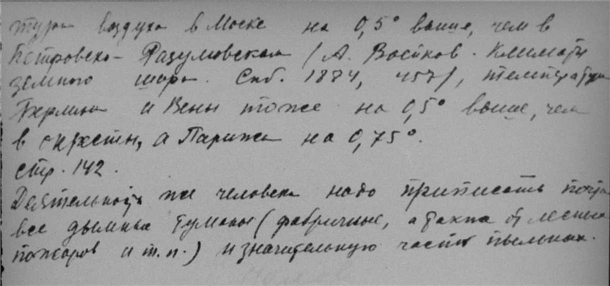 тура воздуха в Москве на 0,5° выше, чем в
Петровско-Разумовском (А. Воейков. Климаты
земного шара. Спб. 1884, 457), температура
Берлина и Вены тоже на 0,5° выше, чем
в окрестн, а Парижа на 0,75°.
стр. 142.
Деятельности же человека надо приписать почти
все дымные туманы (фабричные, а также от лесных
пожаров и т.п.) и значительную часть пыльных.